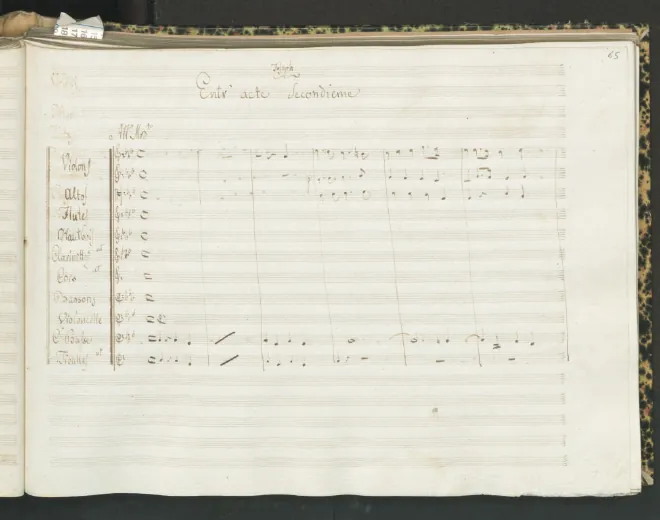 65
Joseph
Entr'acte Secondieme
All° Mod°
Violons
Altos
Flutes
Hautbois
Clarinettes
Cors
Bassons
Violoncelle
C. Basse